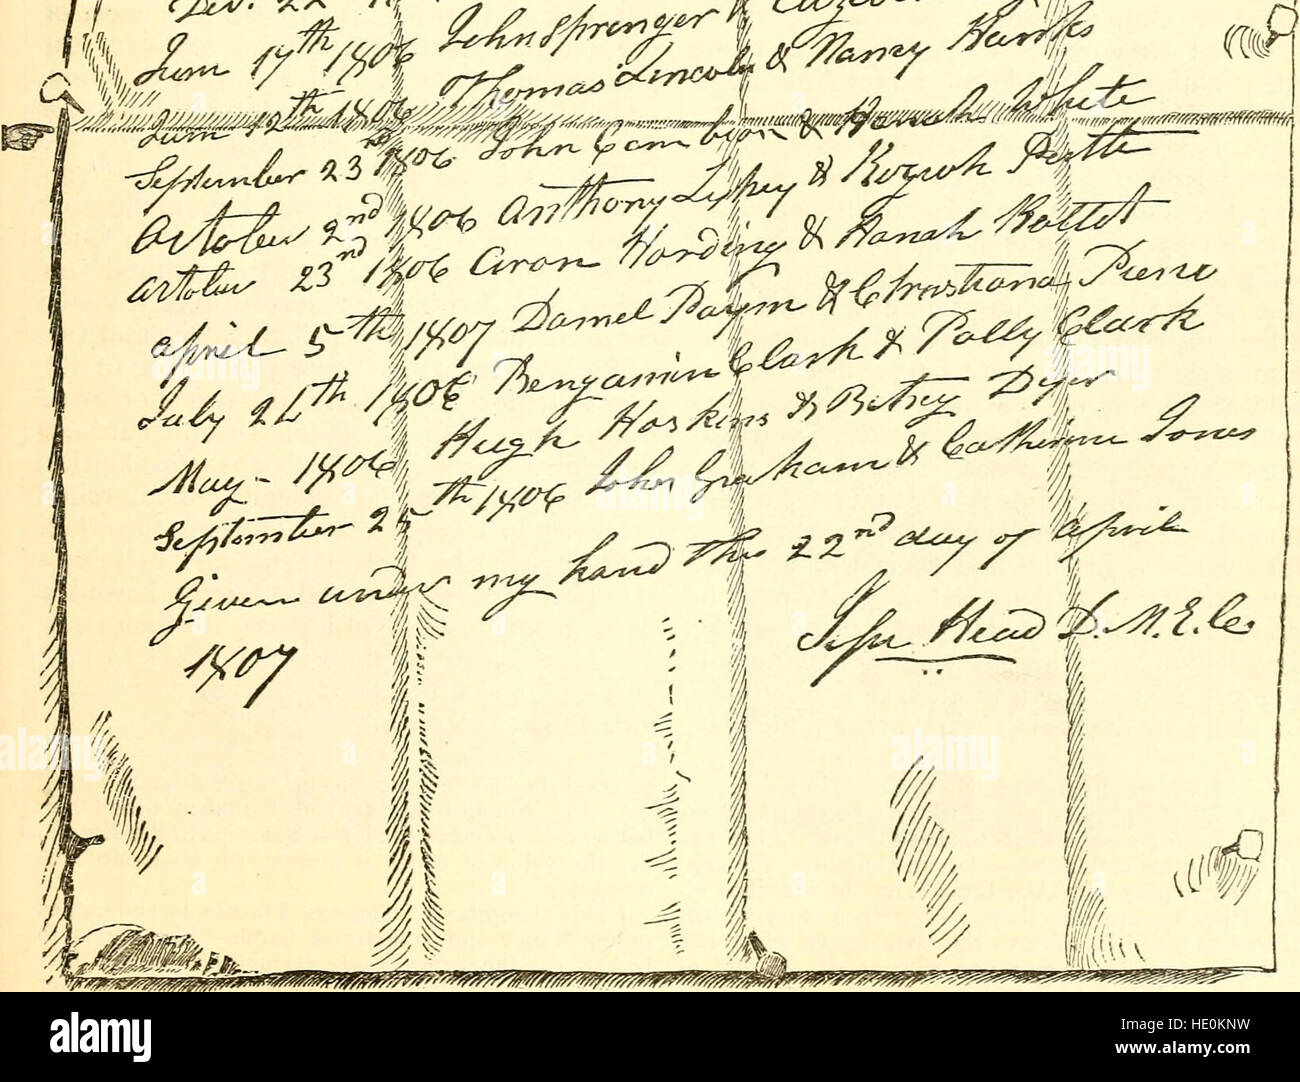 Dec. 22
June 17th 1806 John Springer &
June 12th 1806 Thomas Lincoln & Nancy Hanks
September 23rd 1806 John Cambion & Hanah White
October 2nd 1806 Anthony Lypey & Rozah Pette
October 23rd 1806 Aron Harding & Hanah Rottet
April 5th 1807 Daniel Payne & Christiana Pierce
July 24th 1806 Benjamin Clark & Polly Clark
May - 1806 Hugh Haskins & Betsey Dyer
September 25th 1806 John Graham & Catherine Jones
Given under my hand this 22nd day of April
1807
Jesse Head D. M. E. C.
alamy
a
Image ID: HE0KNW
www.alamy.com